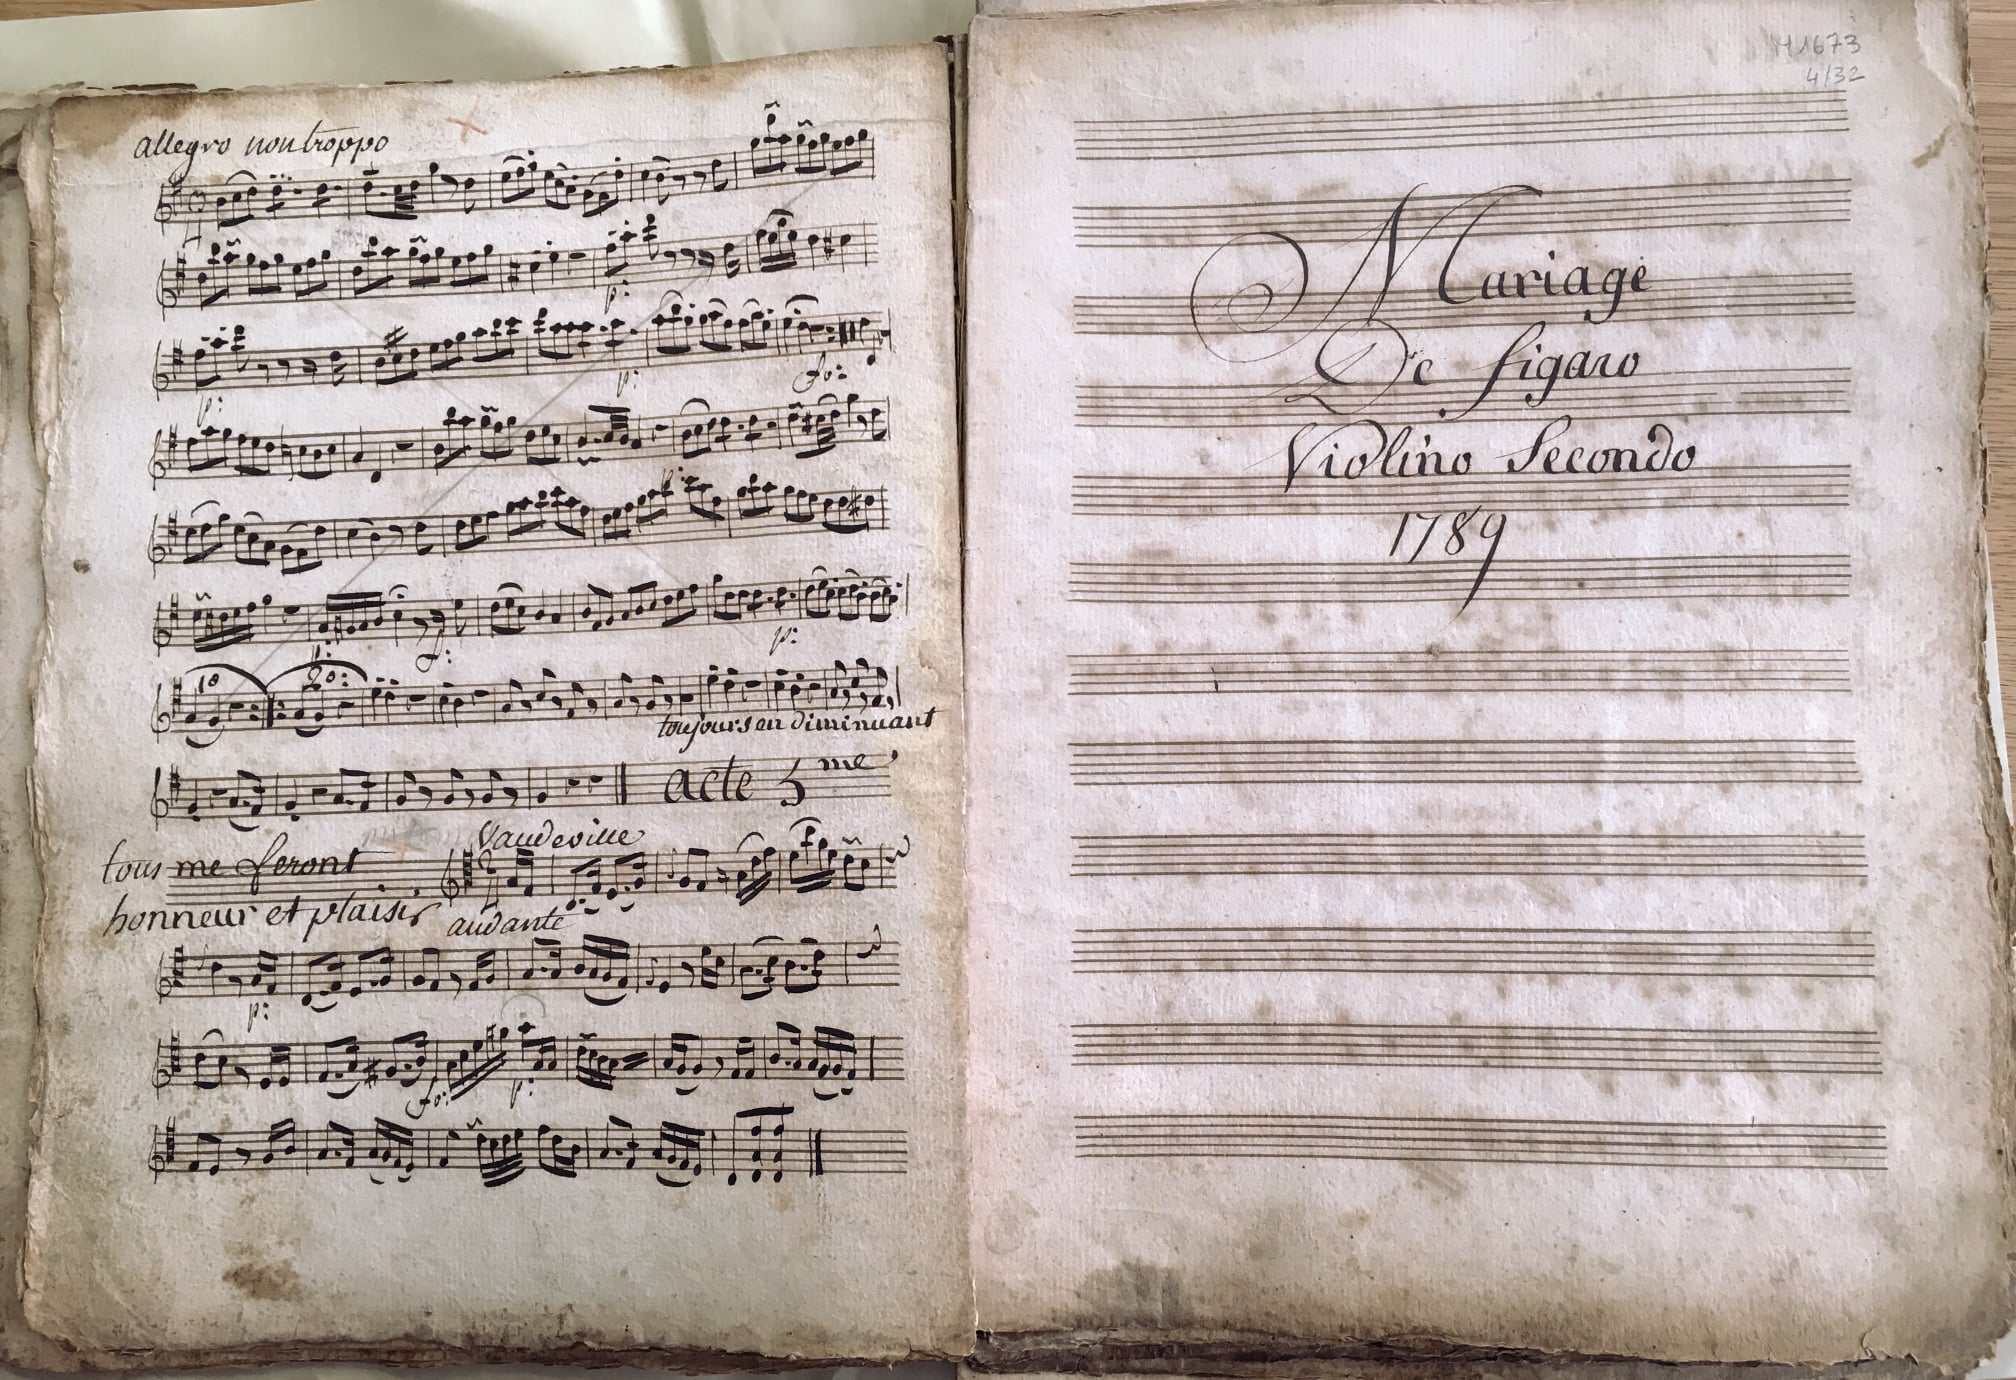 allegro non troppo
p:
p:
p:
fo:
p:
p:
f:
p:
1o
2o:
toujours en diminuant
acte 5me
Vaudeville
tous me feront
honneur et plaisir
andante
p:
fo:
p:
4/32
Mariage
De figaro
Violino Secondo
1789